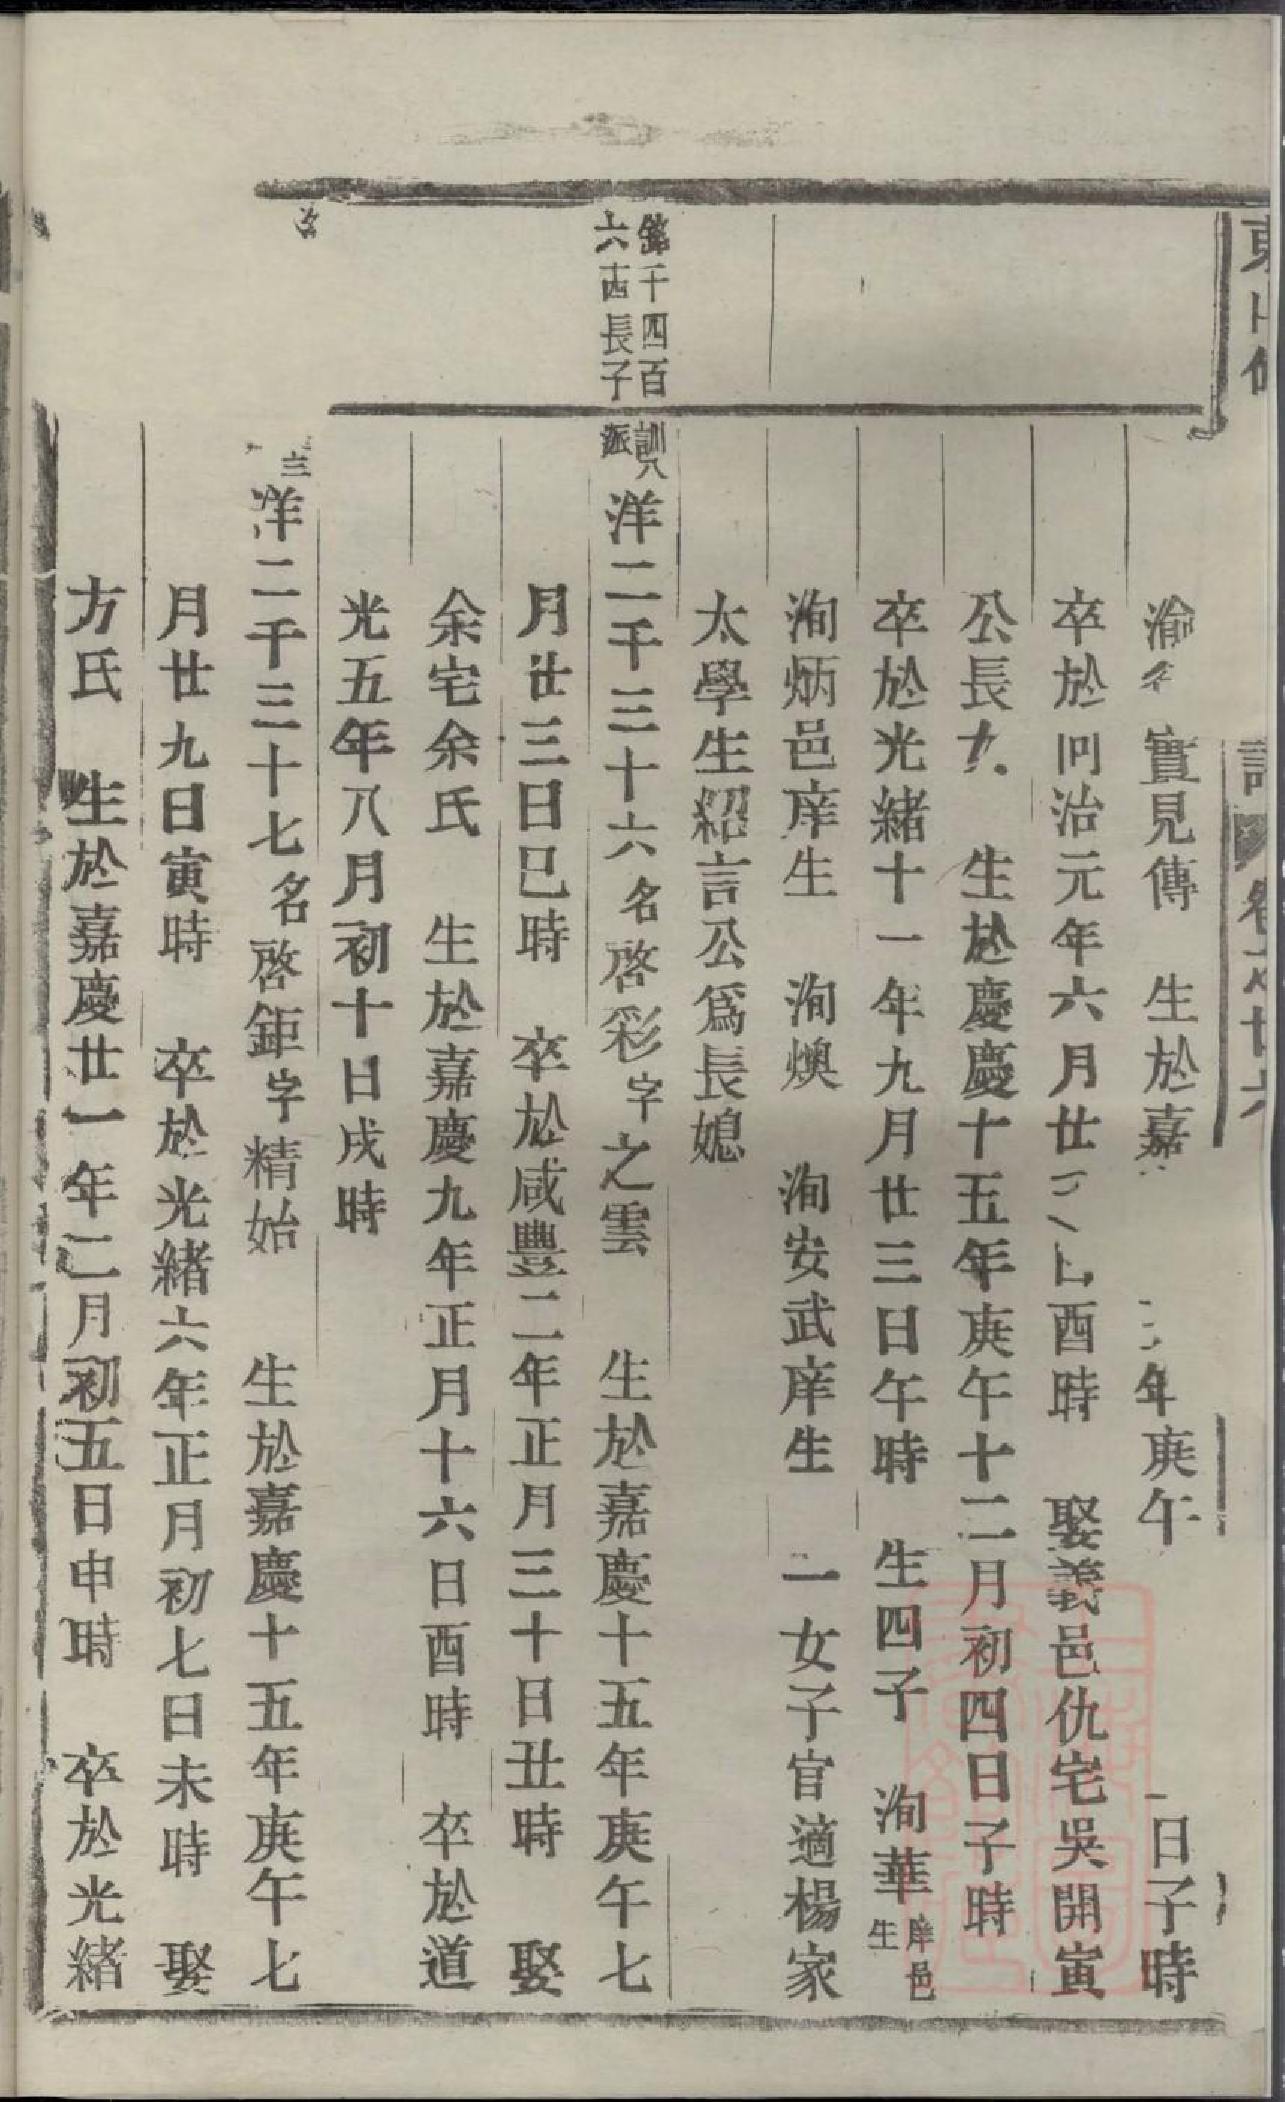 渝名實見傳　生於嘉　年庚午　日子時
卒於同治元年六月廿　酉時　娶義邑仇宅吳開寅
公長九　生於慶慶十五年庚午十二月初四日子時
卒於光緒十一年九月廿三日午時　生四子　洵華邑庠生
洵炳邑庠生　洵煥　洵安武庠生　一女子官適楊家
太學生紹言公爲長媳
千四百
六十四長子
訓八
派
洋二千三十六名啓彩字之雲　生於嘉慶十五年庚午七
月廿三日巳時　卒於咸豐二年正月三十日丑時　娶
余宅余氏　生於嘉慶九年正月十六日酉時　卒於道
光五年八月初十日戌時
次
洋二千三十七名啓鉅字精始　生於嘉慶十五年庚午七
月廿九日寅時　卒於光緒六年正月初七日未時　娶
方氏　生於嘉慶廿一年二月初五日申時　卒於光緒